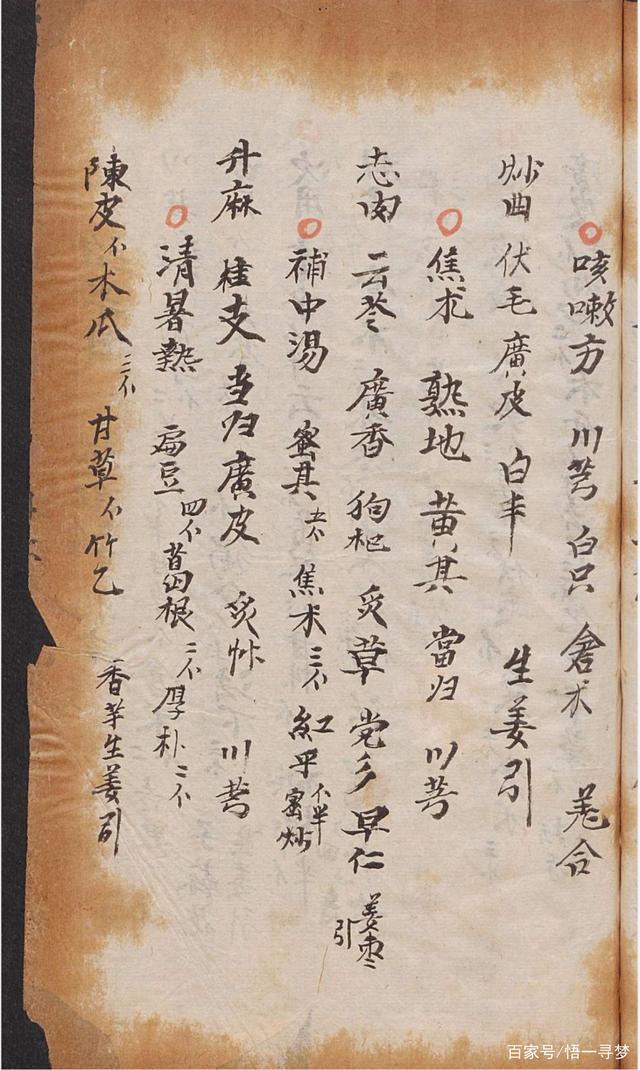 咳嗽方 川芎 白只 倉术 羌合
炒曲 伏毛 廣皮 白丰 生姜引
焦术 熟地 黄其 當归 川芎
志肉 云苓 廣香 狗杞 炙草 党参 早仁 姜枣引
補中湯 蜜其 焦术三 紅 蜜炒
升麻 桂支 当归 廣皮 炙草 川芎
清暑熱 扁豆四 葛根二 厚朴二
陳皮 木瓜三 甘草 竹乙 香芋生姜引
百家号/悟一寻梦